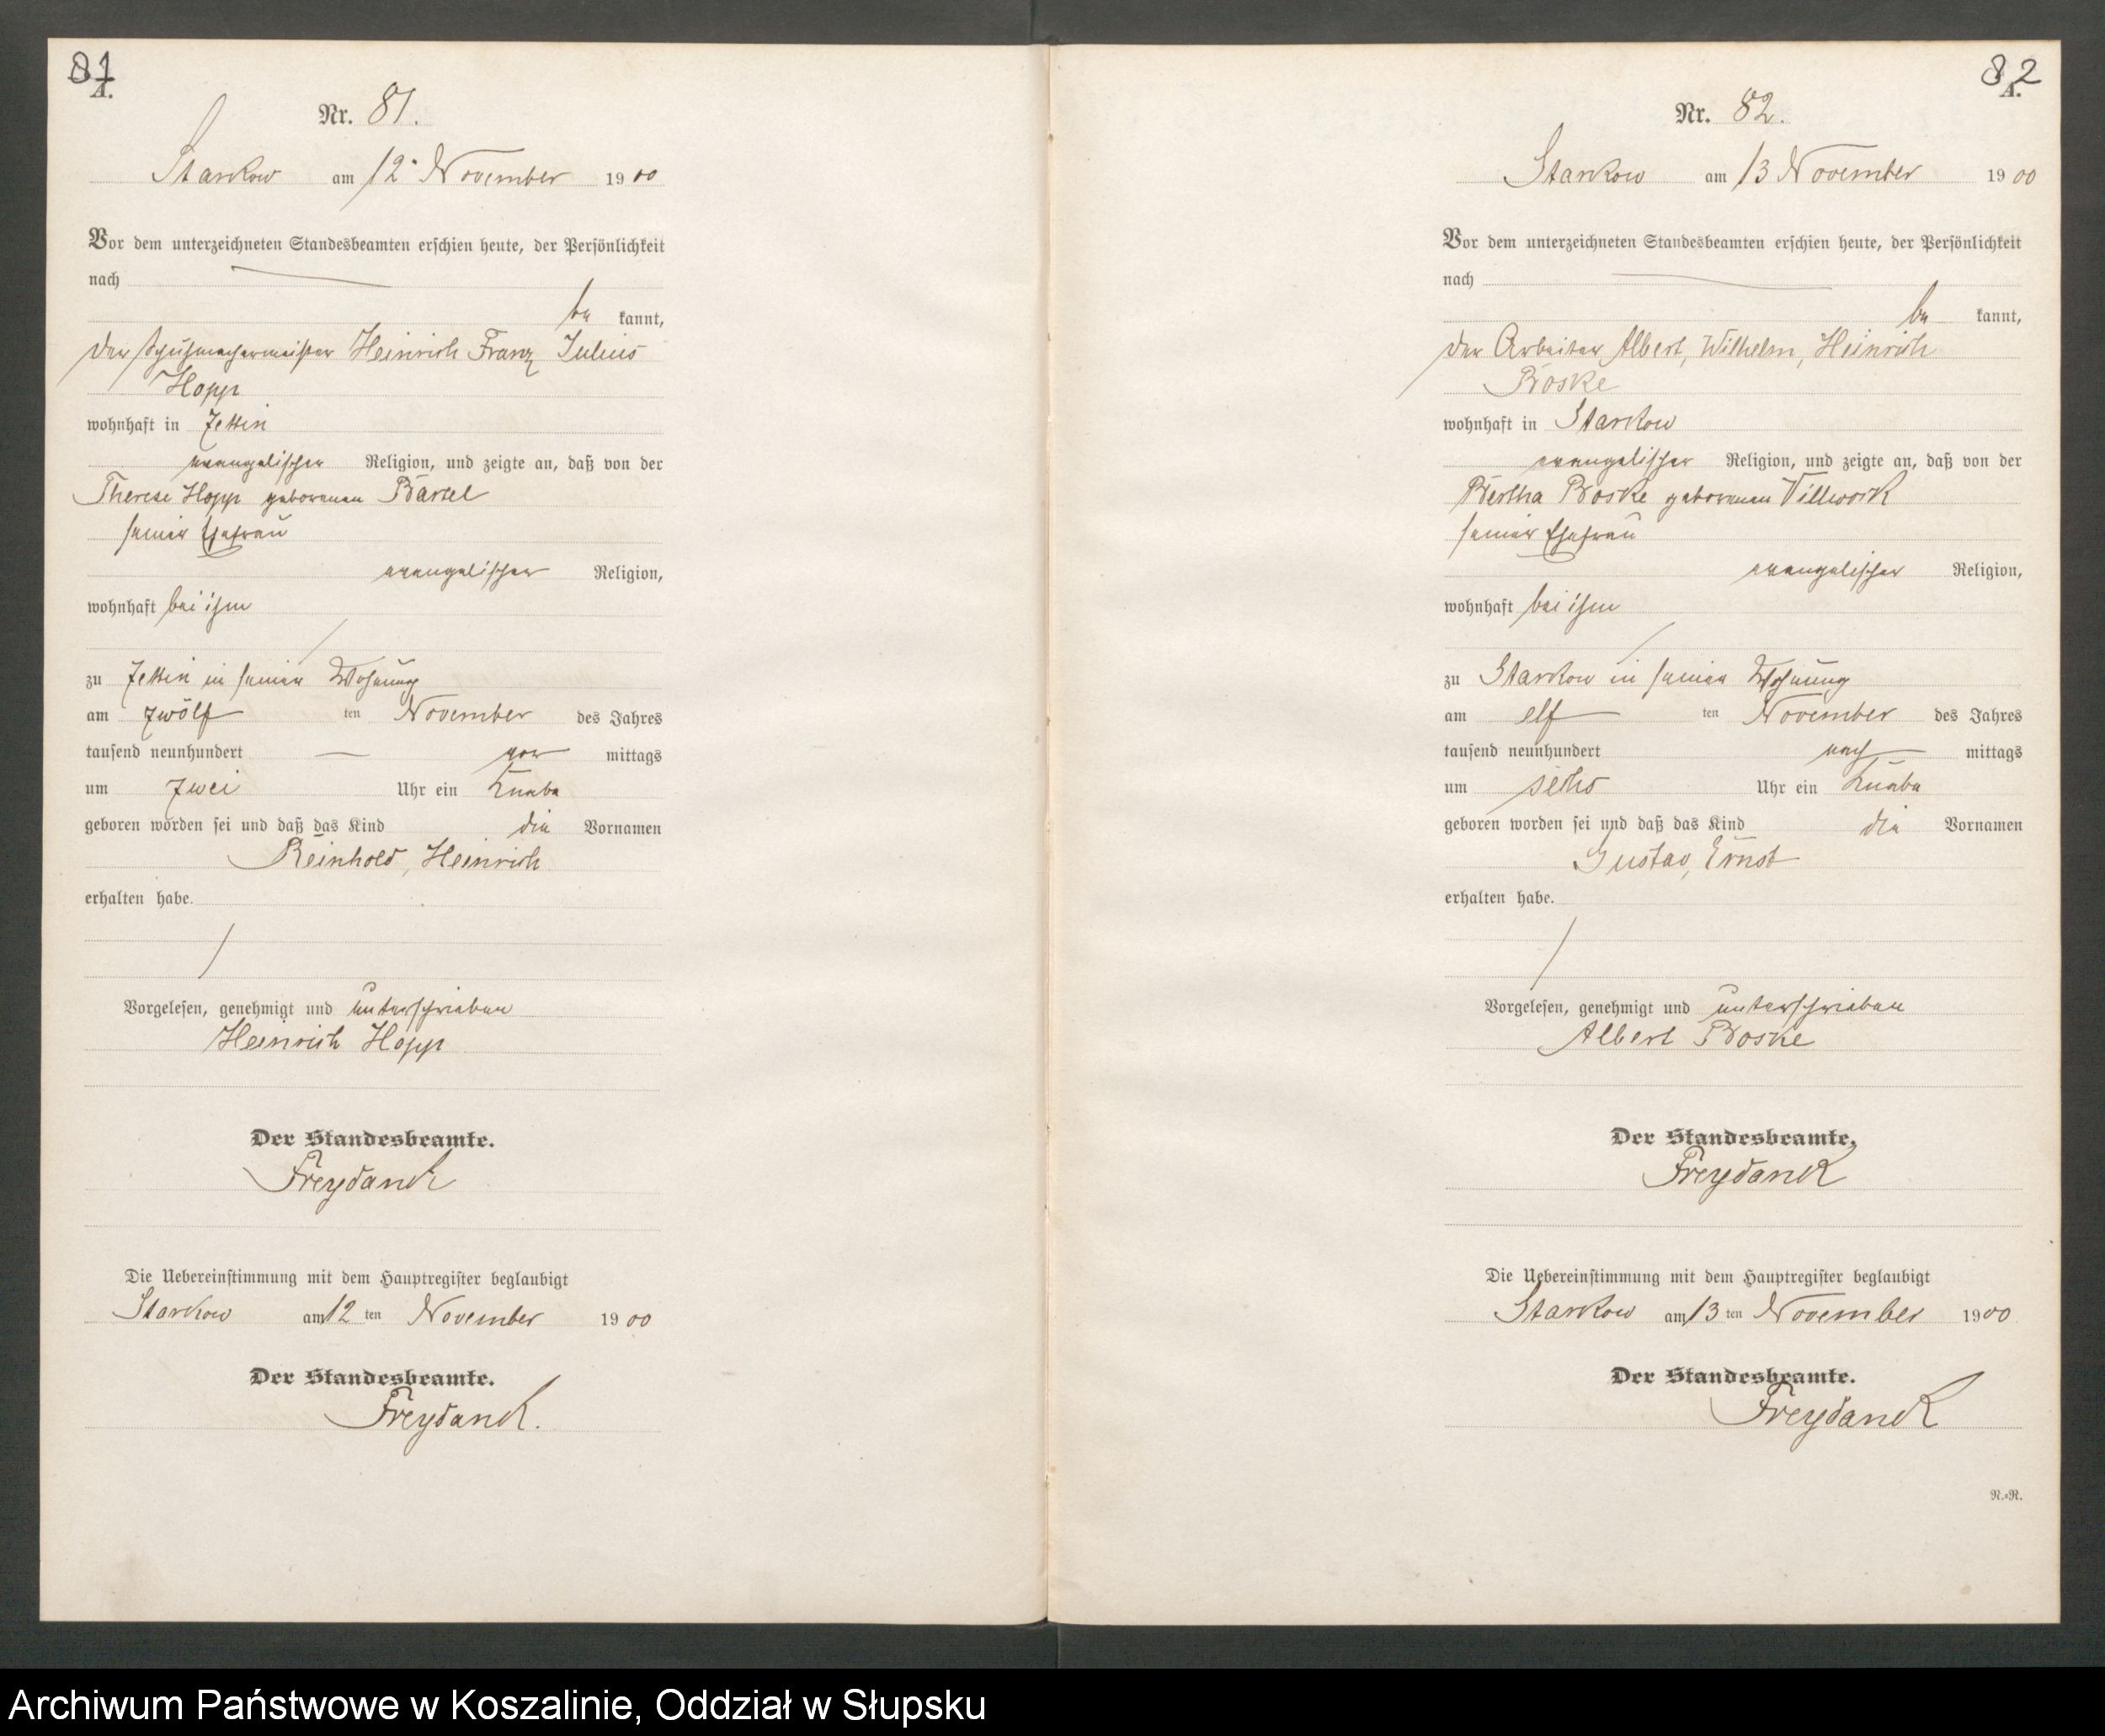 81
A.
Nr. 81.
Starkow am 12. November 1900
Vor dem unterzeichneten Standesbeamten erschien heute, der Persönlichkeit
nach
be kannt,
der Schuhmachermeister Heinrich Franz Julius
Hopp
wohnhaft in Zettin
evangelischer Religion, und zeigte an, daß von der
Therese Hopp geborenen Bartel
seiner Ehefrau
evangelischer Religion,
wohnhaft bei ihm
zu Zettin in seiner Wohnung
am zwölf ten November des Jahres
tausend neunhundert vor mittags
um zwei Uhr ein Knabe
geboren worden sei und daß das Kind die Vornamen
Reinhold, Heinrich
erhalten habe.
Vorgelesen, genehmigt und unterschrieben
Heinrich Hopp
Der Standesbeamte.
Freydanck
Die Uebereinstimmung mit dem Hauptregister beglaubigt
Starkow am 12 ten November 1900
Der Standesbeamte.
Freydanck.
82
A.
Nr. 82.
Starkow am 13 November 1900
Vor dem unterzeichneten Standesbeamten erschien heute, der Persönlichkeit
nach
be kannt,
der Arbeiter Albert, Wilhelm, Heinrich
Broske
wohnhaft in Starkow
evangelischer Religion, und zeigte an, daß von der
Bertha Broske geborenen Villwock
seiner Ehefrau
evangelischer Religion,
wohnhaft bei ihm
zu Starkow in seiner Wohnung
am elf ten November des Jahres
tausend neunhundert nach mittags
um sechs Uhr ein Knabe
geboren worden sei und daß das Kind die Vornamen
Gustav, Ernst
erhalten habe.
Vorgelesen, genehmigt und unterschrieben
Albert Broske
Der Standesbeamte.
Freydanck
Die Uebereinstimmung mit dem Hauptregister beglaubigt
Starkow am 13 ten November 1900
Der Standesbeamte.
Freydanck
N.=R.
Archiwum Państwowe w Koszalinie, Oddział w Słupsku